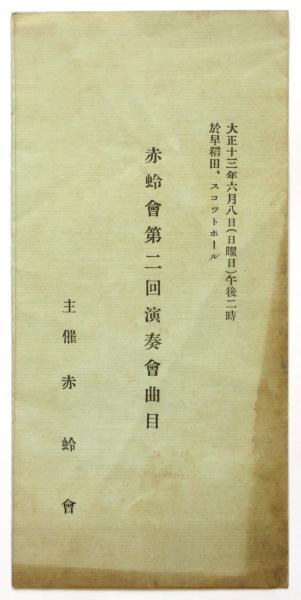 大正十三年六月八日(日曜日)午後二時
於早稻田、スコットホール
赤蛉會第二回演奏會曲目
主催赤蛉會